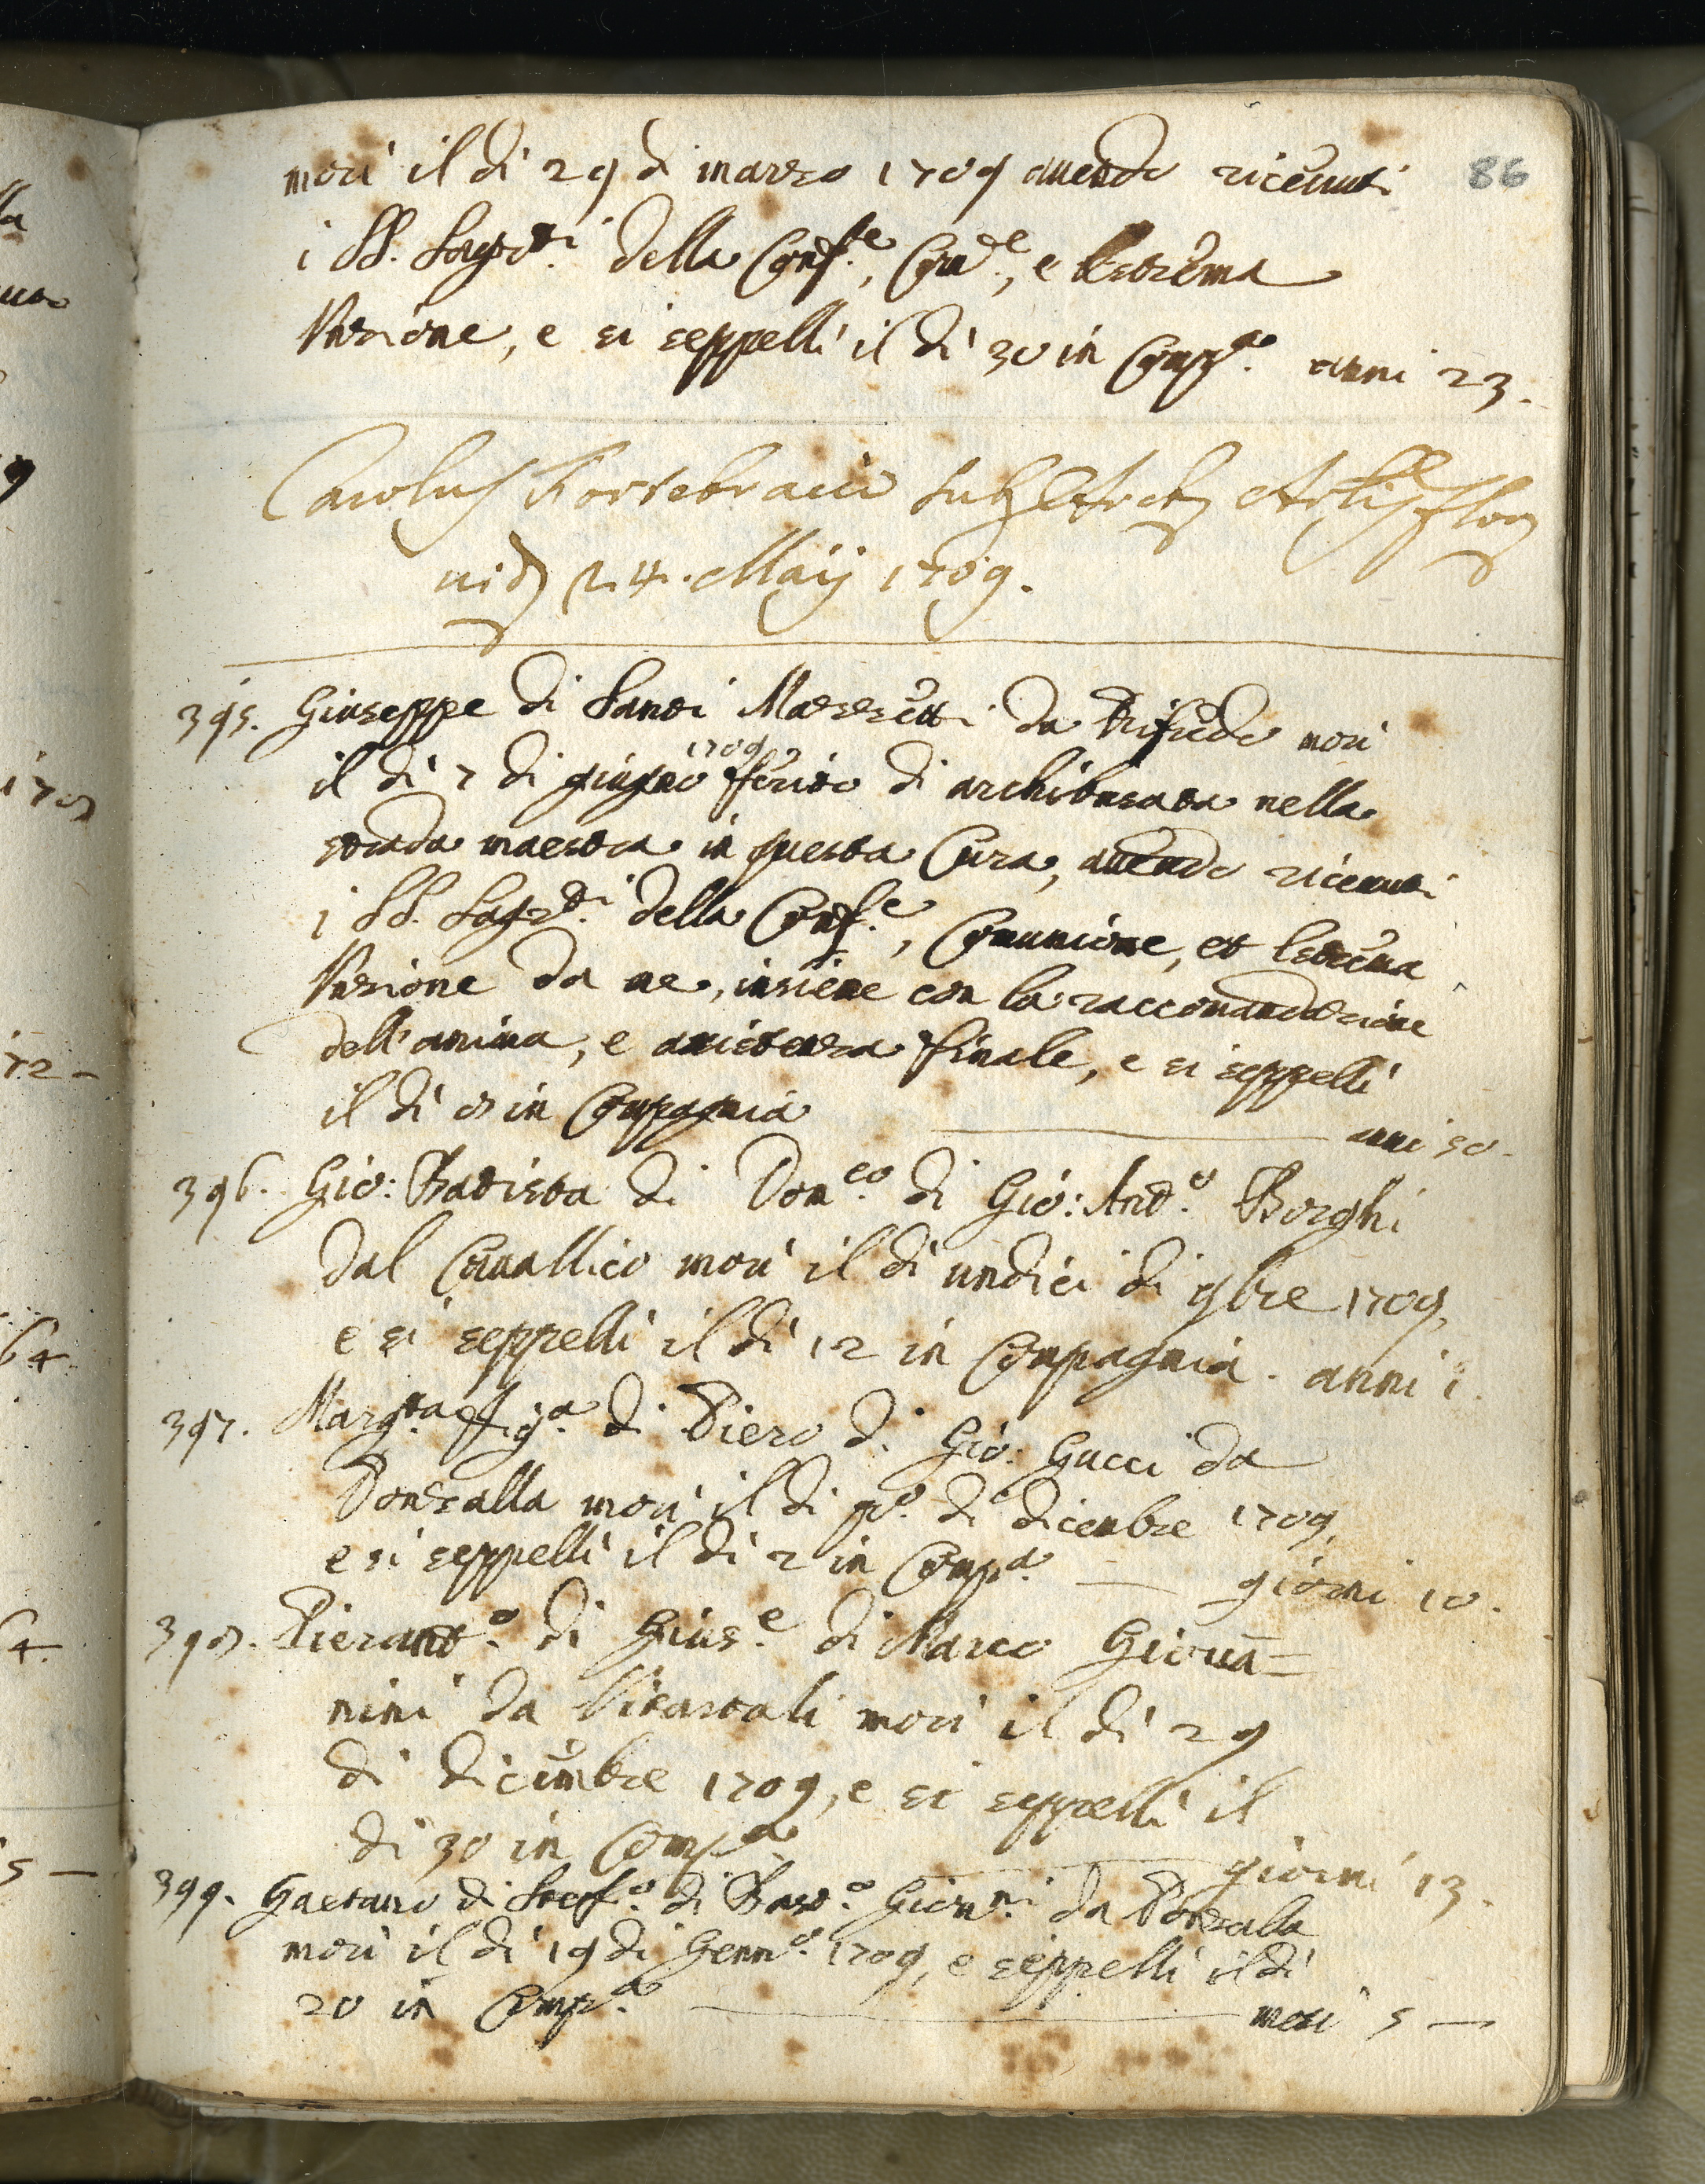 86
morì il dì 29 di marzo 1709 auendo riceuuti
i SS. Sagr.ti della Conf.e, Com.e, e l'estrema
Vnzione, e si seppellì il dì 30 in Comp.a anni 23.
Carolus Fortebracci
24. Maij 1709.
395. Giuseppe di Santi Mazzetti da morì
il dì 7 di giugno 1709 ferito di archibusata nella
strada maestra in questa Cura, auendo riceuuti
i SS. Sagr.ti della Conf.e, Comunione, et estrema
Vnzione da me, insieme con la raccomandazione
dell'anima, e assistenza finale, e si seppellì
il dì 8 in Compagnia anni 50.
396. Gio: Batista di Dom.co di Gio: And.o Borghi
dal Cauallico morì il dì undici di 9bre 1709,
e si seppellì il dì 12 in Compagnia. anni 1.
397. Marg.ta fig.a di Piero di Gio: Gucci da
Ponzalla morì il dì p.o di dicembre 1709,
e si seppellì il dì 2 in Comp.a giorni 10.
398. Pierant.o di Gius.e di Marco Giouan=
nini da morì il dì 29
di dicembre 1709, e si seppellì il
dì 30 in Comp.a giorni 13.
399. Gaetano di Stef.o di Giou.ni da Ponzalla
morì il dì 19 di Genn.o 1709, e seppellì il dì
20 in Comp.a mesi 5